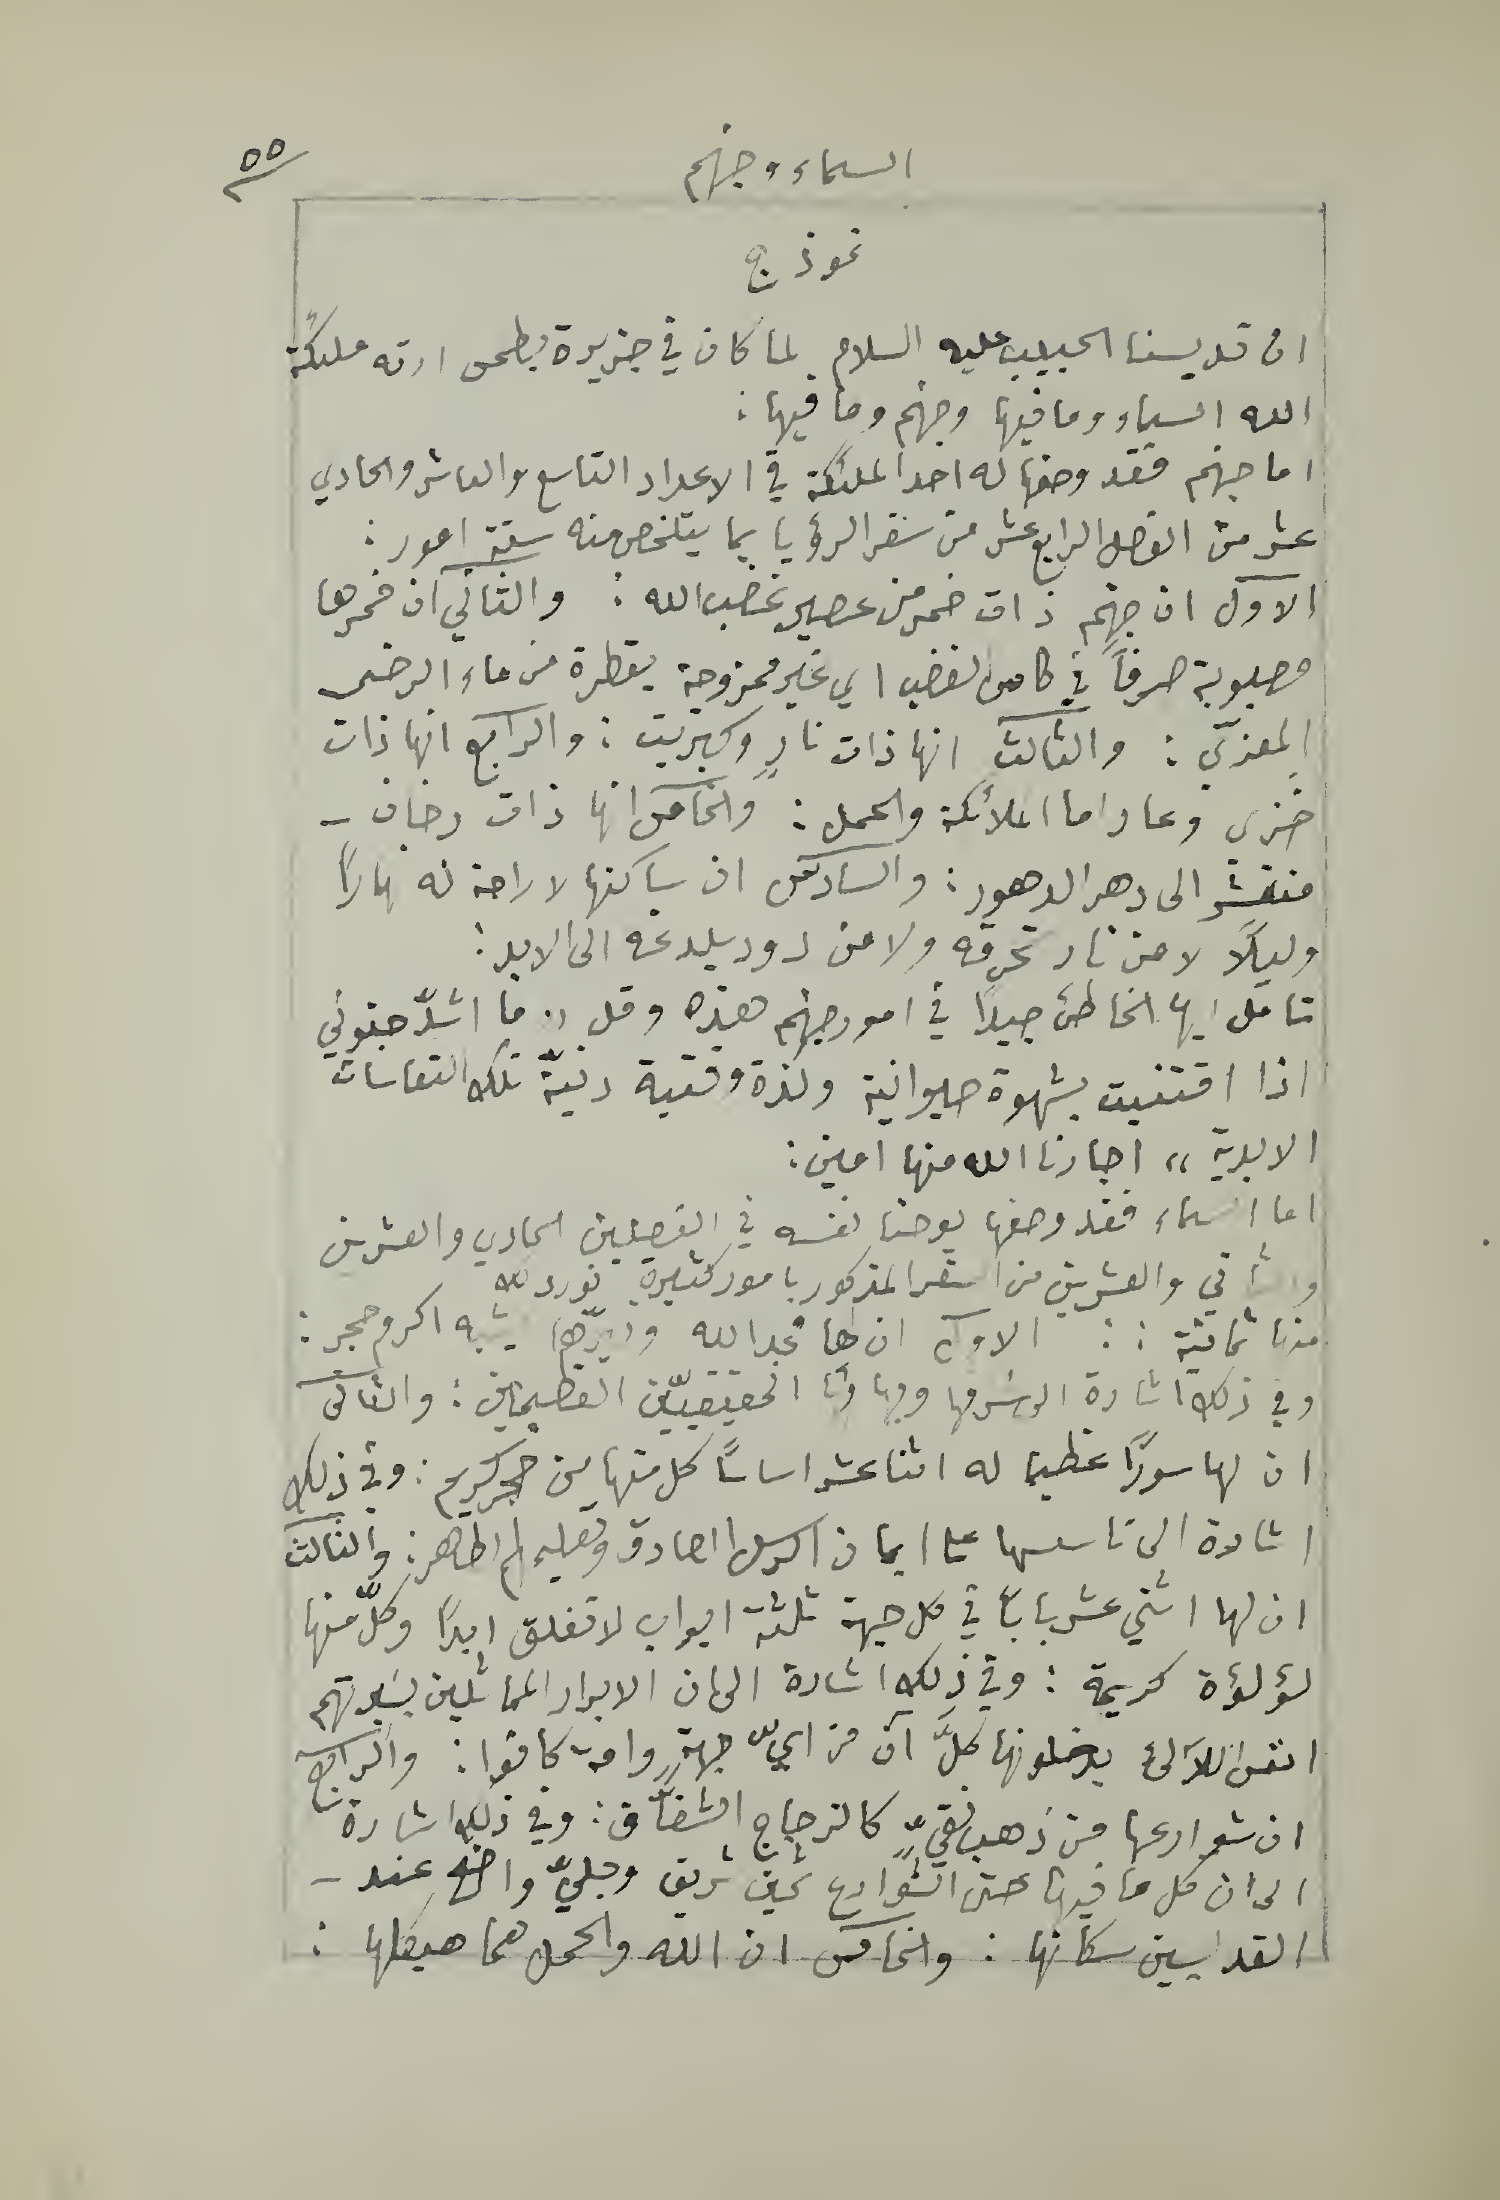 ٥٥
السماء وجهنم
نموذج
ان قديسنا الحبيب عليه السلام لما كان في جزيرة بطمس ارته ملئكة
الله السماء وما فيها وجهنم وما فيها :
اما جهنم فقد وصفها له احد الملئكة في الاعداد التاسع والعاشر والحادي
عشر من الفصل الرابع عشر من سفر الرؤيا بما يتلخص منه ستة امور :
الاول ان جهنم ذات خمر من عصير غضب الله : والثاني ان خمرها
مصبوبة صرفاً في كاس الغضب اي غير ممزوجة بقطرة من ماء الرضى
المعزي : والثالث انها ذات نارٍ وكبريت : والرابع انها ذات
خزي وعار اما الملائكة والحمل : والخامس انها ذات دخان –
منتشر الى دهر الدهور : والسادس ان ساكنها لا راحة له نهاراً
وليلاً لا من نار تحرقه ولا من دود يلدغه الى الابد :
تامل ايها الخاطئ جيداً في امور جهنم هذه وقل „ ما اشدّ جنوني
اذا اقتنيت بشهوة حيوانية ولذة وقتية دنيّة تلك التعاسات
الابدية „ اجارنا الله منها امين :
اما السماء فقد وصفها يوحنا نفسه في الفصلين الحادي والعشرين
والثاني والعشرين من السفر المذكور بامور كثيرة نورد لك
منها ثمانية : : الاول ان لها مجد الله ونيّرها يشبه اكرم حجر :
وفي ذلك اشارة الى شرفها وبهائها الحقيقيّين العظيمين : والثاني
ان لها سورًا عظيما له اثنا عشر اساسًا كل منها من حجر كريم : وفي ذلك
اشارة الى تاسسها على ايمان الرسل الصادق وتعليمهم الطاهر : والثالث
ان لها اثني عشر بابًا في كل جهة ثلثة ابواب لا تغلق ابدًا وكلّ منها
لؤلؤة كريمة : وفي ذلك اشارة الى ان الابرار المماثلين بسيرتهم
انفس اللآلئ يدخلونها كلَّ آن من ايّ جهةٍ وامة كانوا : والرابع
ان شوارعها من ذهب نقيٍّ كالزجاج الشفّاف : وفي ذلك اشارة
الى ان كل ما فيها حتى الشوارع ثمين شريف وجليّ واضح عند –
القديسين سكانها : والخامس ان الله والحمل هما هيكلها :